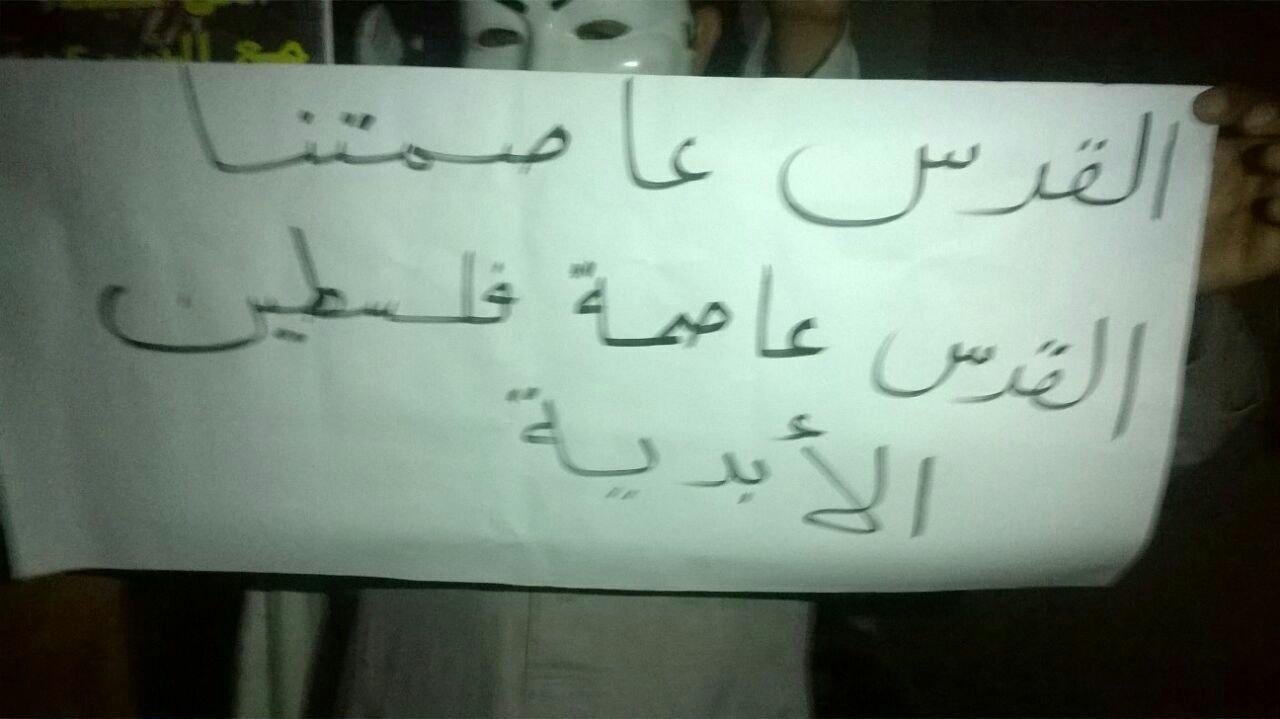 القدس عاصمتنا
القدس عاصمة فلسطين
الأبدية